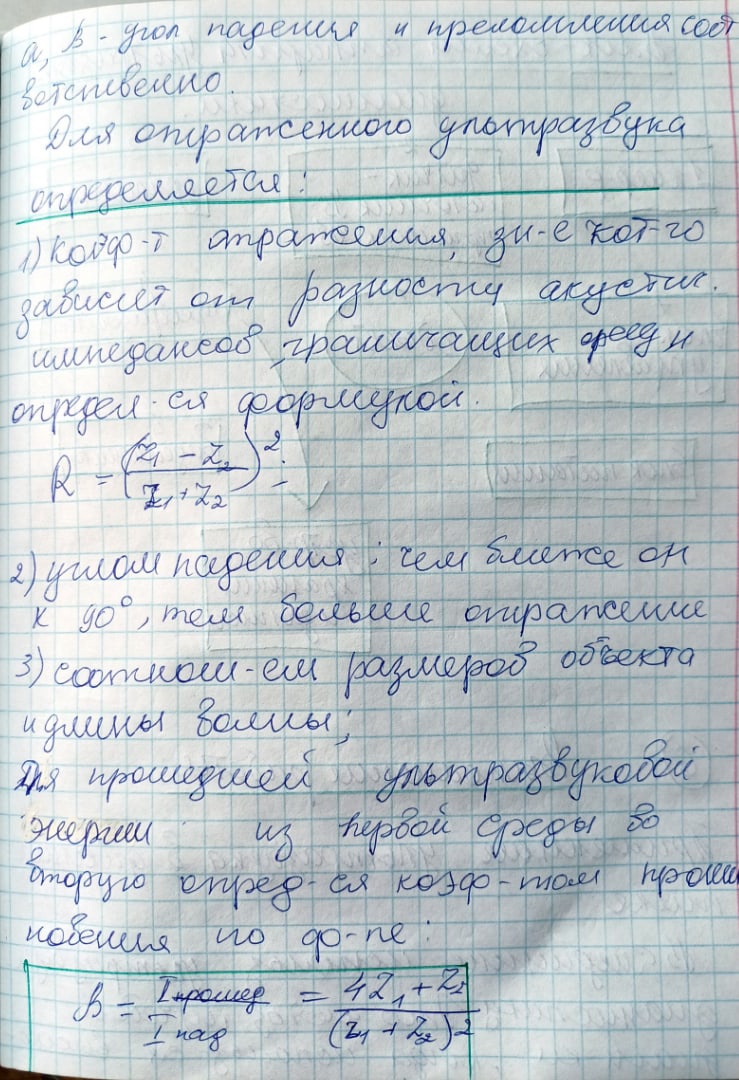 α, β - угол падения и преломления соот
ветственно.
Для отраженного ультразвука
определяется:
1) Коэф-т отражения, зн-е кот-го
зависит от разности акустич.
импедансов граничащих сред и
определ-ся формулой.
R = (Z₁ - Z₂ / Z₁ + Z₂)² ;
2) углом падения : чем ближе он
к 90°, тем больше отражение
3) соотнош-ем размеров объекта
и длины волны;
Для прошедшей ультразвуковой
энергии из первой среды во
вторую опред-ся коэф-том прони
новения по ф-ле:
β = I прошед / I пад = 4Z₁ + Z₂ / (Z₁ + Z₂)²